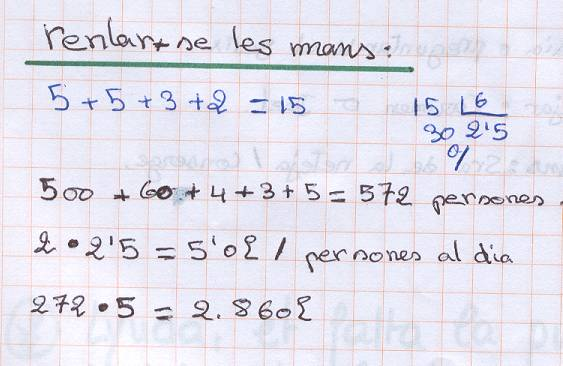 rentar-se les mans:
5 + 5 + 3 + 2 = 15
15 6
30 2'5
0/
500 + 60 + 4 + 3 + 5 = 572 persones.
2 · 2'5 = 5'0l / persones al dia
272 · 5 = 2.860l